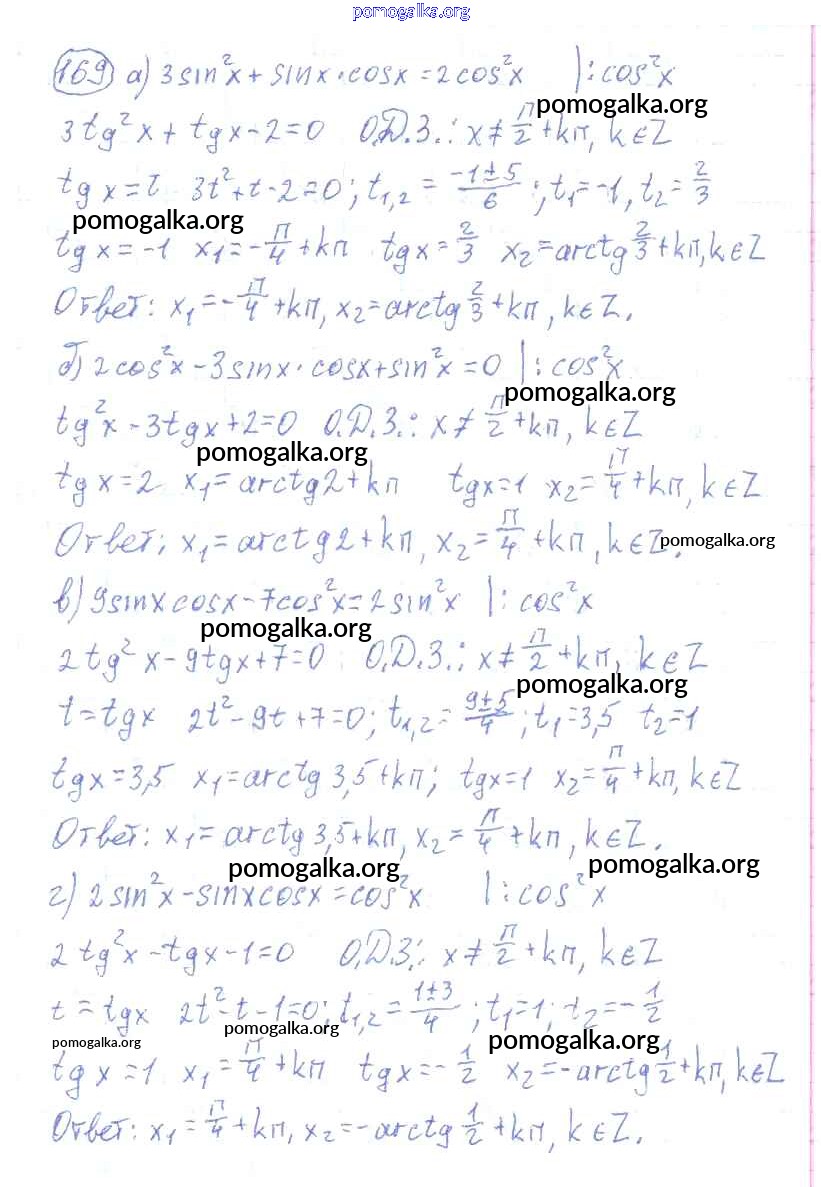 pomogalka.org
169 а) 3sin²x + sinx·cosx = 2cos²x |:cos²x
pomogalka.org
3tg²x + tgx - 2 = 0 О.Д.З.: x ≠ π/2 + kπ, k∈Z
tgx = t 3t² + t - 2 = 0; t₁,₂ = (-1±5)/6; t₁ = -1, t₂ = 2/3
pomogalka.org
tgx = -1 x₁ = -π/4 + kπ tgx = 2/3 x₂ = arctg 2/3 + kπ, k∈Z
Ответ: x₁ = -π/4 + kπ, x₂ = arctg 2/3 + kπ, k∈Z.
б) 2cos²x - 3sinx·cosx + sin²x = 0 |:cos²x
pomogalka.org
tg²x - 3tgx + 2 = 0 О.Д.З.: x ≠ π/2 + kπ, k∈Z
pomogalka.org
tgx = 2 x₁ = arctg2 + kπ tgx = 1 x₂ = π/4 + kπ, k∈Z
Ответ: x₁ = arctg2 + kπ, x₂ = π/4 + kπ, k∈Z.
pomogalka.org
в) 9sinxcosx - 7cos²x = 2sin²x |:cos²x
pomogalka.org
2tg²x - 9tgx + 7 = 0 О.Д.З.: x ≠ π/2 + kπ, k∈Z
pomogalka.org
t = tgx 2t² - 9t + 7 = 0; t₁,₂ = (9±5)/4; t₁ = 3,5 t₂ = 1
tgx = 3,5 x₁ = arctg 3,5 + kπ; tgx = 1 x₂ = π/4 + kπ, k∈Z
Ответ: x₁ = arctg 3,5 + kπ, x₂ = π/4 + kπ, k∈Z.
pomogalka.org pomogalka.org
г) 2sin²x - sinxcosx = cos²x |:cos²x
2tg²x - tgx - 1 = 0 О.Д.З.: x ≠ π/2 + kπ, k∈Z
t = tgx 2t² - t - 1 = 0; t₁,₂ = (1±3)/4; t₁ = 1; t₂ = -1/2
pomogalka.org pomogalka.org pomogalka.org
tgx = 1 x₁ = π/4 + kπ tgx = -1/2 x₂ = -arctg 1/2 + kπ, k∈Z
Ответ: x₁ = π/4 + kπ, x₂ = -arctg 1/2 + kπ, k∈Z.